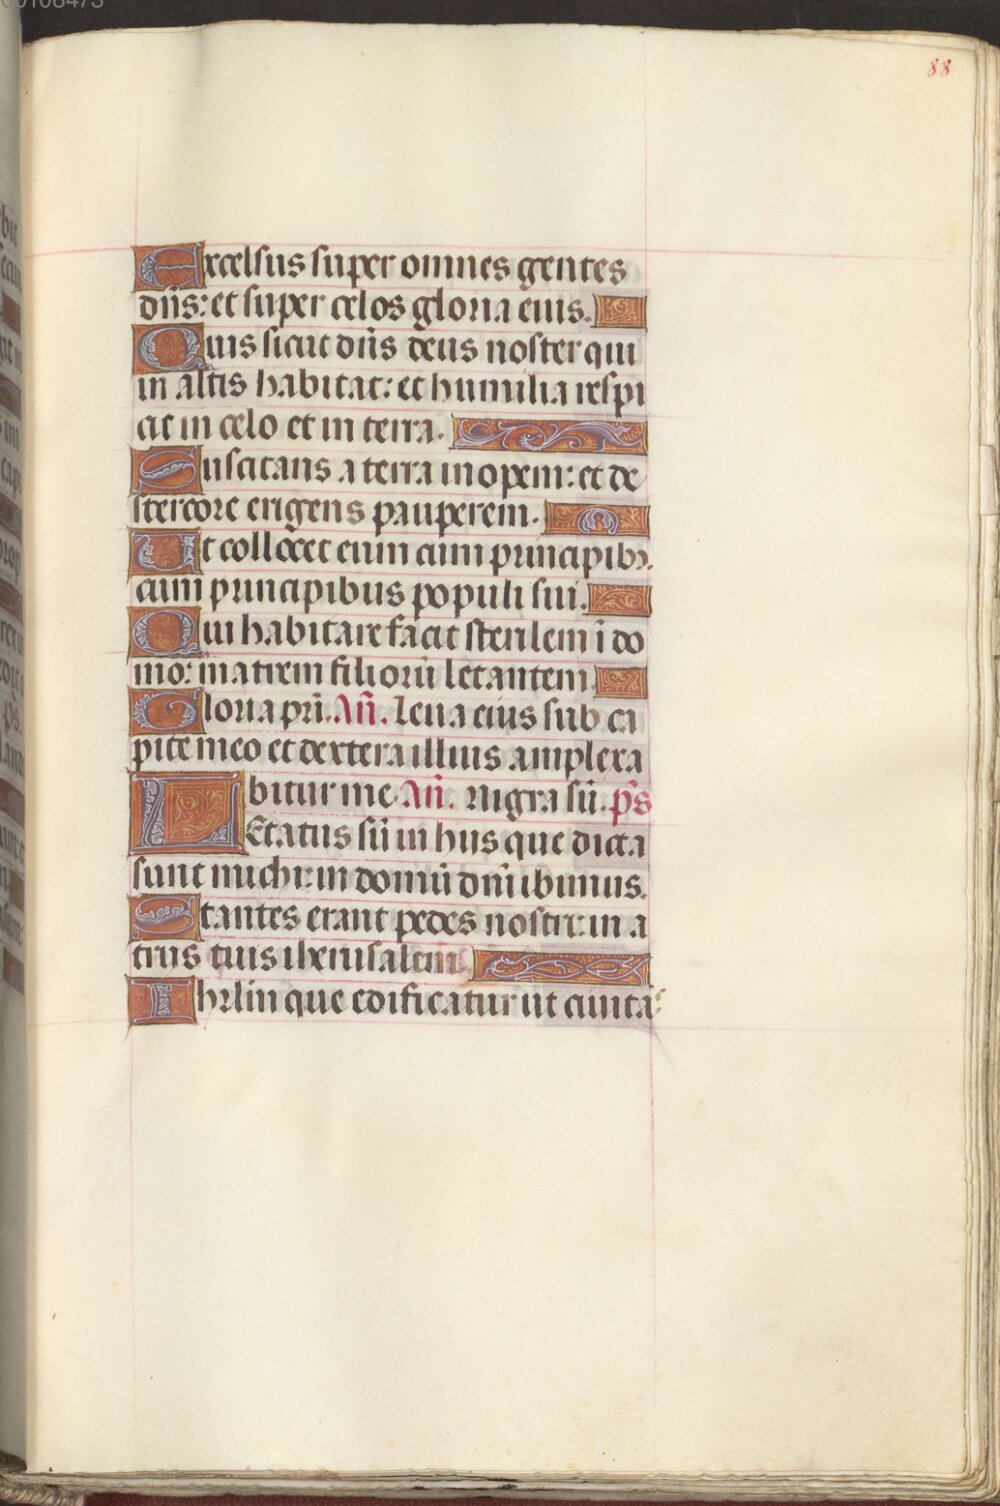 88
Excelsus super omnes gentes
dñs: et super celos gloria eius.
Quis sicut dñs deus noster qui
in altis habitat: et humilia respi
cit in celo et in terra.
Suscitans a terra inopem: et de
stercore erigens pauperem.
Ut collocet eum cum principibꝫ.
cum principibus populi sui.
Qui habitare facit sterilem ī do
mo: matrem filiorū letantem.
Gloria pri. Añ. Leua eius sub ca
pite meo et dextera illius amplexa
bitur me. Añ. Nigra sū. ps
LEtatus sū in hiis que dicta
sunt michi: in domū dñi ibimus.
Stantes erant pedes nostri: in a
triis tuis iherusalem.
Ihrlm que edificatur ut ciuita